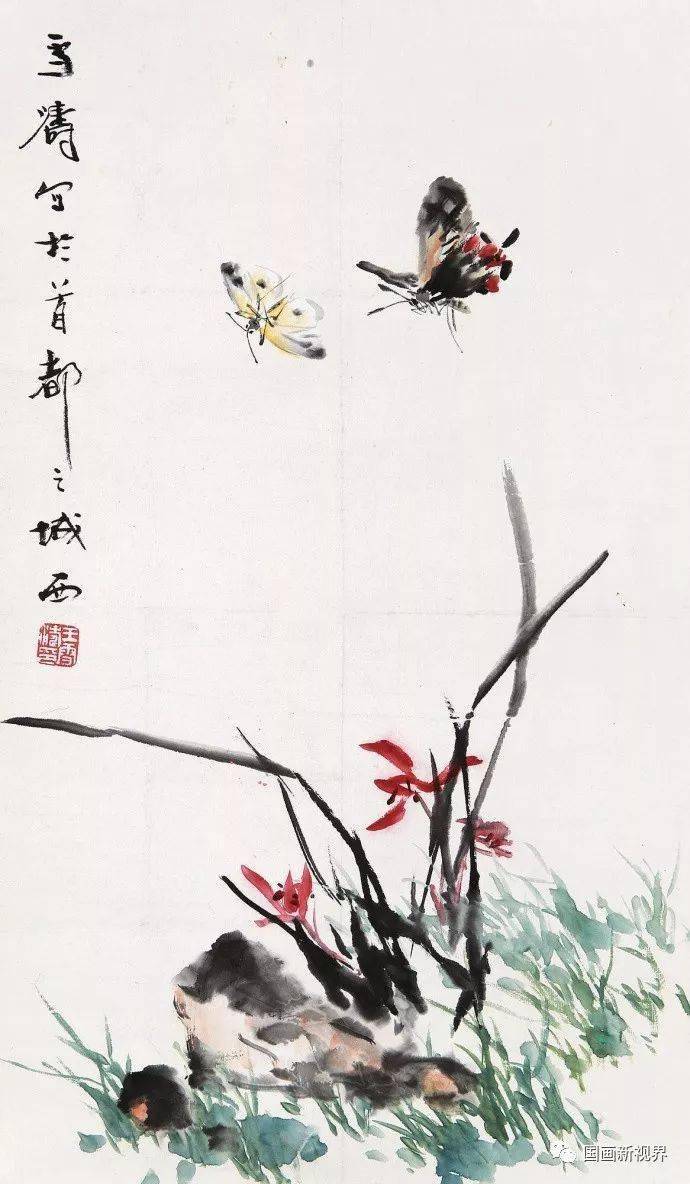 雪濤写於首都之城西
王雪濤印
国画新视界